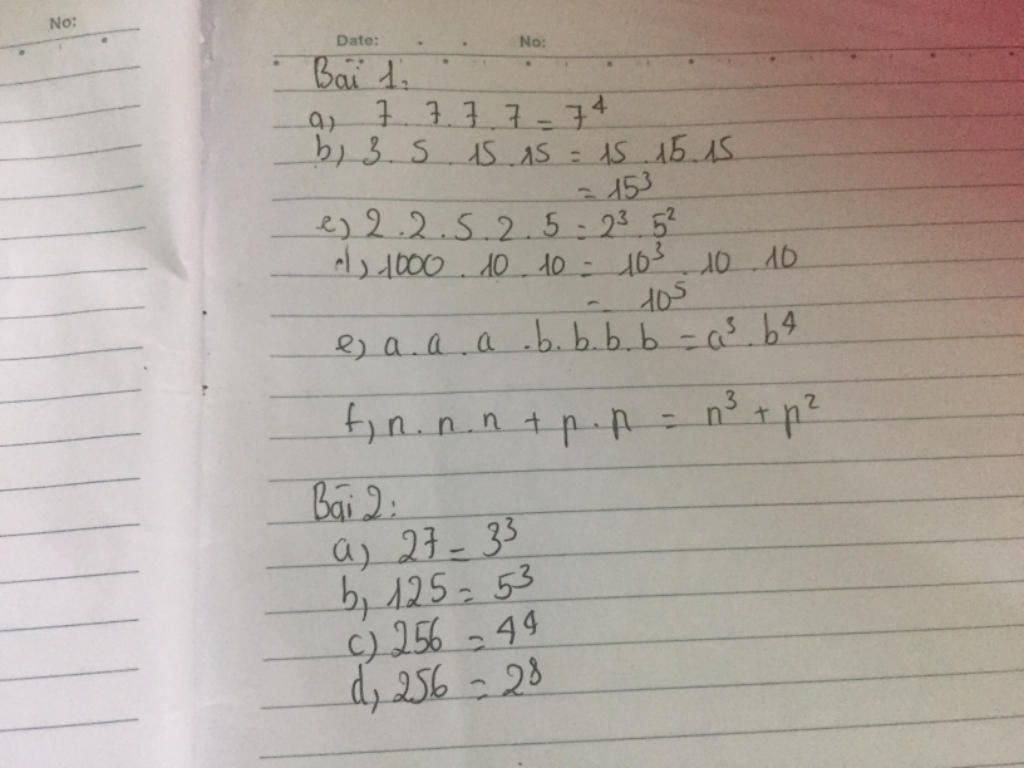 No:
Date: No:
Bài 1:
a) 7 . 7 . 7 . 7 = 7⁴
b) 3 . 5 . 15 . 15 = 15 . 15 . 15
= 15³
c) 2 . 2 . 5 . 2 . 5 = 2³ . 5²
d) 1000 . 10 . 10 = 10³ . 10 . 10
= 10⁵
e) a . a . a . b . b . b . b = a³ . b⁴
f) n . n . n + p . p = n³ + p²
Bài 2:
a) 27 = 3³
b) 125 = 5³
c) 256 = 4⁴
d) 256 = 2⁸